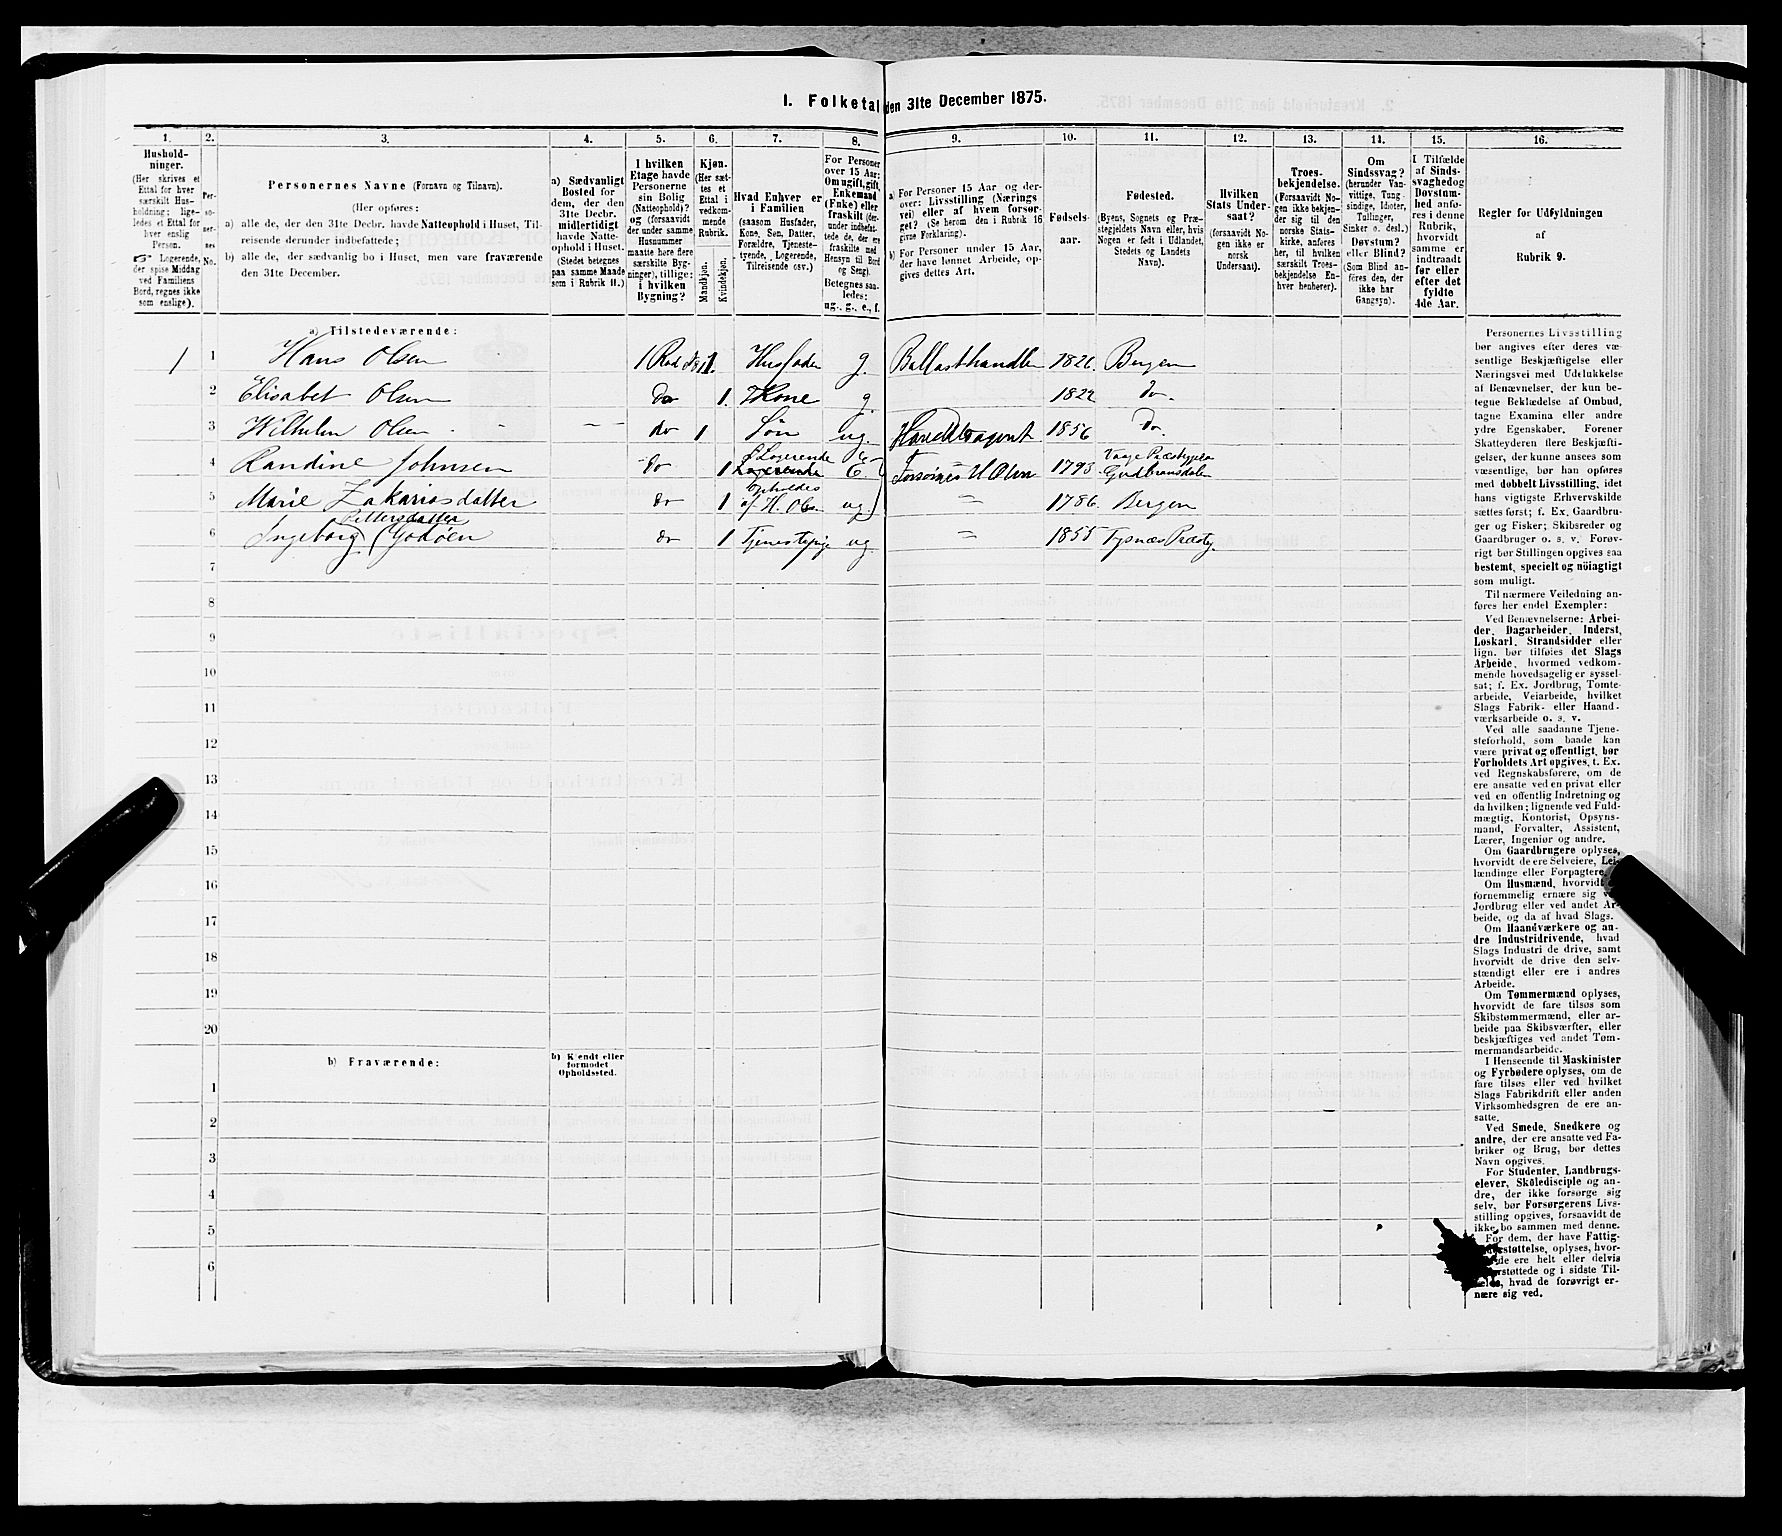 1. Folketal den 31te December 1875.
1. 2. 3. 4. 5. 6. 7. 8. 9. 10. 11. 12. 13. 14. 15. 16.
Hushold-
ninger.
(Her skrives et
Ettal for hver
særskilt Hus-
holdning; lige-
ledes et Ettal for
hver enslig
Person.
☞ Logerende,
der spise Middag
ved Familiens
Bord, regnes ikke
som enslige).
Per-
so-
ner-
nes
No.
Personernes Navne (Fornavn og Tilnavn).
(Her opføres:
a) alle de, der den 31te Decbr. havde Natteophold i Huset, Til-
reisende derunder indbefattede;
b) alle de, der sædvanlig bo i Huset, men vare fraværende
den 31te December.
a) Sædvanligt
Bosted for
dem, der den
31te Decbr.
midlertidigt
havde Natte-
ophold i Huset.
(Stedet betegnes
paa samme Maade
som i Rubrik 11.)
I hvilken
Etage havde
Personerne
sin Bolig
(Natteophold)?
og (forsaavidt
der under samme
Husnummer
maatte høre flere
særskilte Byg-
ninger), tillige:
i hvilken
Bygning?
Kjøn.
(Her sæt-
tes et
Ettal i
vedkom-
mende
Rubrik.
Mandkjøn.
Kvindekjøn.
Hvad Enhver er
i Familien
(saasom Husfader,
Kone, Søn, Datter,
Forældre, Tjeneste-
tyende, Logerende,
Tilreisende osv.)
For Personer
over 15 Aar:
Om ugift, gift,
Enkemand
(Enke) eller
fraskilt (der-
under indbefat-
tede de, der ere
fraskilte med
Hensyn til Bord
og Seng).
Betegnes saa-
ledes:
ug., g., e., f.
a) For Personer 15 Aar og der-
over: Livsstilling (Nærings
vei) eller af hvem forsør-
get? (Se herom den i Rubrik 16
givne Forklaring).
b) For Personer under 15 Aar,
der have lønnet Arbeide, op-
gives dettes Art.
Fødsels-
aar.
Fødested.
(Byens, Sognets og Præ-
stegjeldets Navn eller, hvis
Nogen er født i Udlandet,
Stedets og Landets
Navn).
Hvilken
Stats Under-
saat?
(forsaavidt No-
gen ikke er
norsk
Undersaat).
Troes-
bekjendelse.
(Forsaavidt No-
gen ikke bekjen-
der sig til den
norske Stats-
kirke, anføres
her, til hvilken
særskilt Troes-
bekjendelse En-
hver henhører).
Om
Sindssvag?
(herunder Van-
vittige, Tung-
sindige, Idioter,
Tullinger,
Sinker o. desl.)
Døvstum?
eller Blind?
(Som Blind an-
føres den, der
ikke har
Gangsyn).
I Tilfælde
af Sinds-
svaghed og
Døvstum-
hed anfø-
res i denne
Rubrik,
hvorvidt
samme er
indtraadt
før eller
efter det
fyldte
4de Aar.
Regler for Udfyldningen
af
Rubrik 9.
a) Tilstedeværende:
1 1 Hans Olsen 1 Husfader g. Ballasthandler 1826. Bergen
2 Elisabet Olsen do 1. Kone g. 1822 do.
3 Wilhelm Olsen do 1 Søn ug. Handelsagent 1856 do.
4 Randine Johnsen do 1 Logerende E Forsørges H Olsen 1793 Vaage Præstegjeld Gudbransdalen
5 Marie Zakariasdatter do 1 opholdes af H. Ols. ug. " 1786 Bergen
6 Ingeborg Pettersdatter (Godøen do 1 Tjenestepige ug " 1855 Tysnæs Præstg.
7
8
9
10
11
12
13
14
15
16
17
18
19
20
b) Fraværende:
b) Kendt eller
formodet
Opholdssted.
1
2
3
4
5
6
Personernes Livsstilling
bør angives efter deres væ-
sentlige Beskjæftigelse eller
Næringsvei med Udelukkelse
af Benævnelser, der kun be-
tegne Beklædelse af Ombud,
tagne Examina eller andre
ydre Egenskaber. Forener
Skatteyderen flere Beskjæfti-
gelser, der kunne ansees som
væsentlige, bør han opføres
med dobbelt Livsstilling, idet
hans vigtigste Erhvervskilde
sættes først; f. Ex. Gaardbru-
ger og Fisker; Skibsreder og
Gaardbruger o. s. v. Forøv-
rigt bør Stillingen opgives saa
bestemt, specielt og nöiagtigt
som muligt.
Til nærmere Veiledning an-
føres her endel Exempler:
Ved Benævnelserne: Arbei-
der, Dagarbeider, Inderst,
Løskarl, Strandsidder eller
lign. bør tilføies det Slags
Arbeide, hvormed vedkom-
mende hovedsagelig er syssel-
sat; f. Ex. Jordbrug, Tomte-
arbeide, Veiarbeide, hvilket
Slags Fabrik- eller Haand-
værksarbeide o. s. v.
Ved alle saadanne Tjene-
steforhold, som baade kan
være privat og offentligt, bør
Forholdets Art opgives, f. Ex.
ved Regnskabsførere, om de
ere ansatte ved en privat eller
ved en offentlig Indretning og
da hvilken; lignende ved Fuld-
mægtig, Kontorist, Opsyns-
mand, Forvalter, Assistent,
Lærer, Ingeniør og andre.
Om Gaardbrugere oplyses,
hvorvidt de ere Selveiere, Lei-
lændinge eller Forpagtere.
Om Husmænd, hvorvidt
fornemmelig ernære sig
Jordbrug eller ved andet Ar-
beide, og da af hvad Slags.
Om Haandværkere og an-
dre Industridrivende, hvad
Slags Industri de drive, samt
hvorvidt de drive den selv-
stændigt eller ere i andres
Arbeide.
Om Tømmermænd oplyses,
hvorvidt de fare tilsøs som
Skibstømmermænd, eller ar-
beide paa Skibsværfter, eller
beskjæftiges ved andet Tøm-
mermandsarbeide.
I Henseende til Maskinister
og Fyrbødere oplyses, om de
fare tilsøs eller ved hvilket
Slags Fabrikdrift eller anden
Virksomhedsgren de ere an-
satte.
Ved Smede, Snedkere og
andre, der ere ansatte ved Fa-
briker og Brug, bør dettes
Navn opgives.
For Studenter, Landbrugs-
elever, Skoledisciple og an-
dre, der ikke forsørge sig
selv, bør Forsørgerens Livs-
stilling opgives, forsaavidt de
ikke bo sammen med denne.
For dem, der have Fattig-
støttelse, oplyses, hvor-
de ere helt eller delvis
rstøttede og i sidste Til-
hvad de forøvrigt er-
nære sig ved.